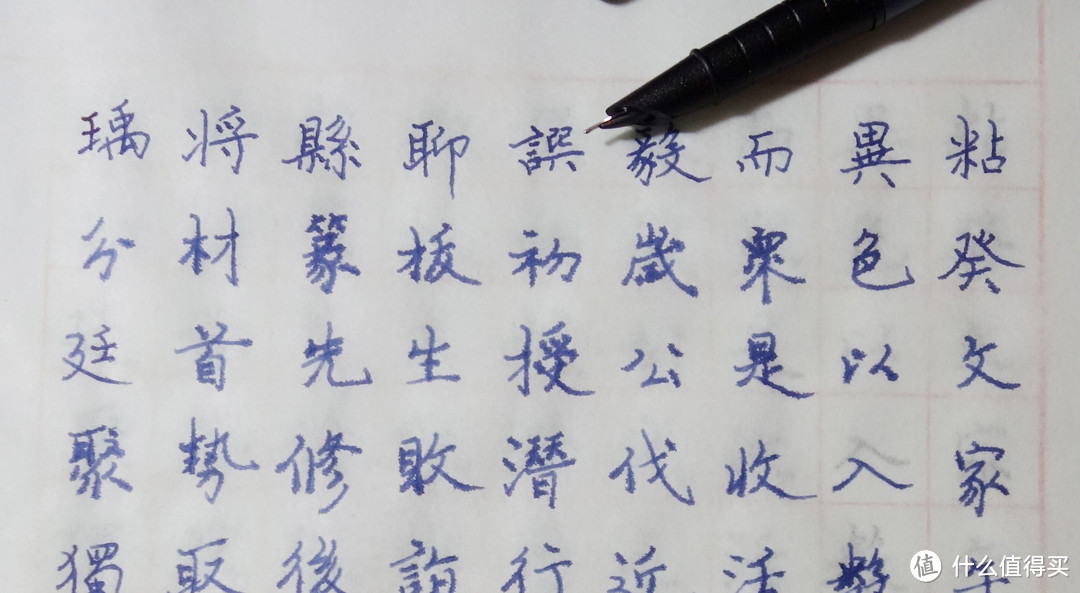 粘癸文家
異色以入
而眾是收活
毅歲公伐近
譔初授潛行
聊拔生敢
縣篆先修後
将材首势取
瑀分廷聚獨
值 什么值得买